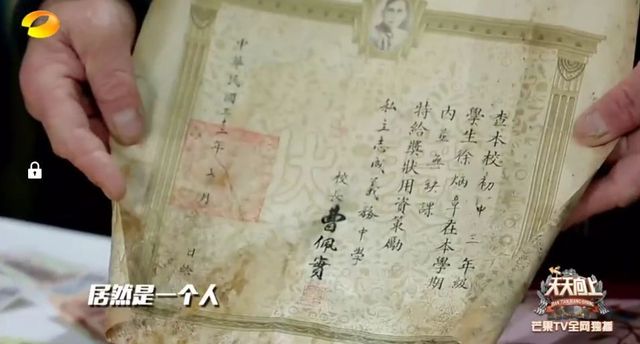 查本校初中三年級
學生徐炳章在本學期
內並無缺課
特給獎狀用資策勵
私立志成義務中學
校長曹佩實
中華民國三十三年七月 日給
居然是一个人
天天向上
芒果TV全网独播